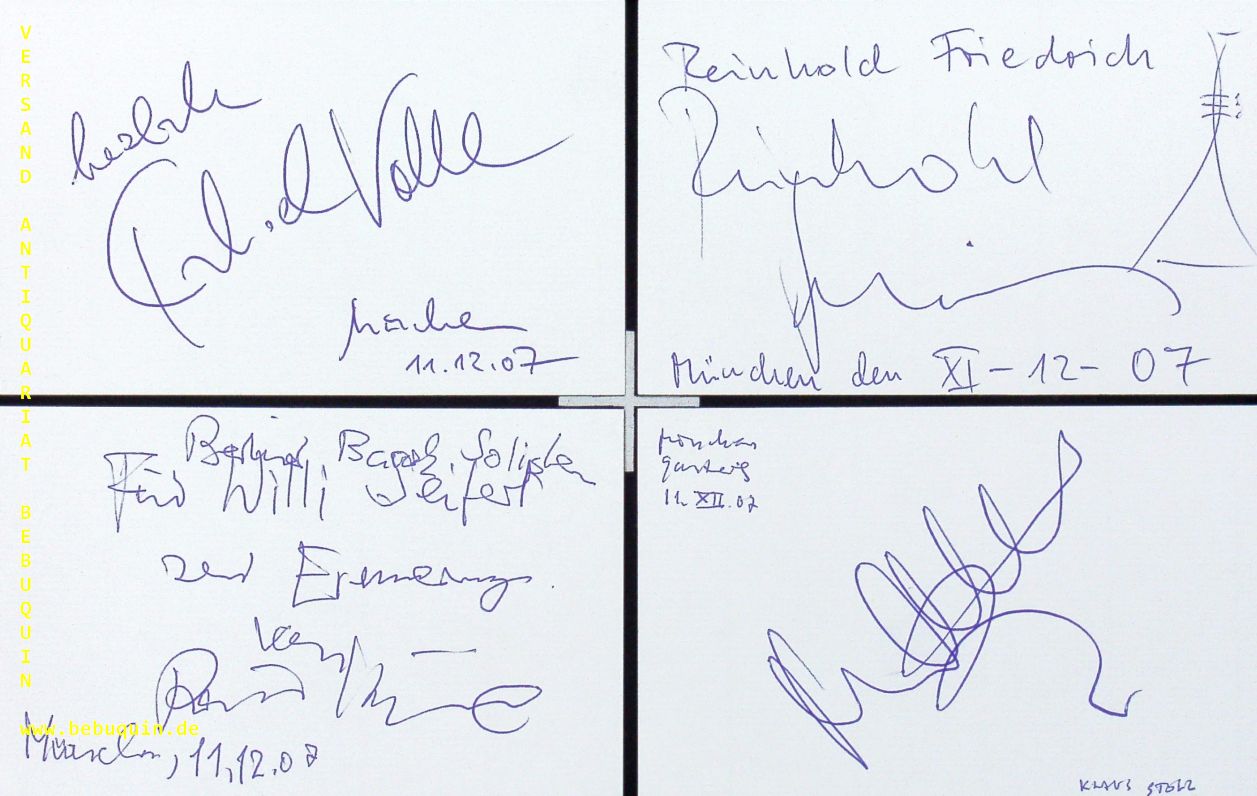 VERSAND ANTIQUARIAT BEBUQUIN
herzlich
Volle
München
11.12.07
Reinhold Friedrich
Reinhold
München den XI-12-07
Berliner Barock Solisten
Für Willi Seifert
zur Erinnerung
von
www.bebuquin.de
München, 11.12.07
München
Gasteig
11. XII. 07
KLAUS STOLL